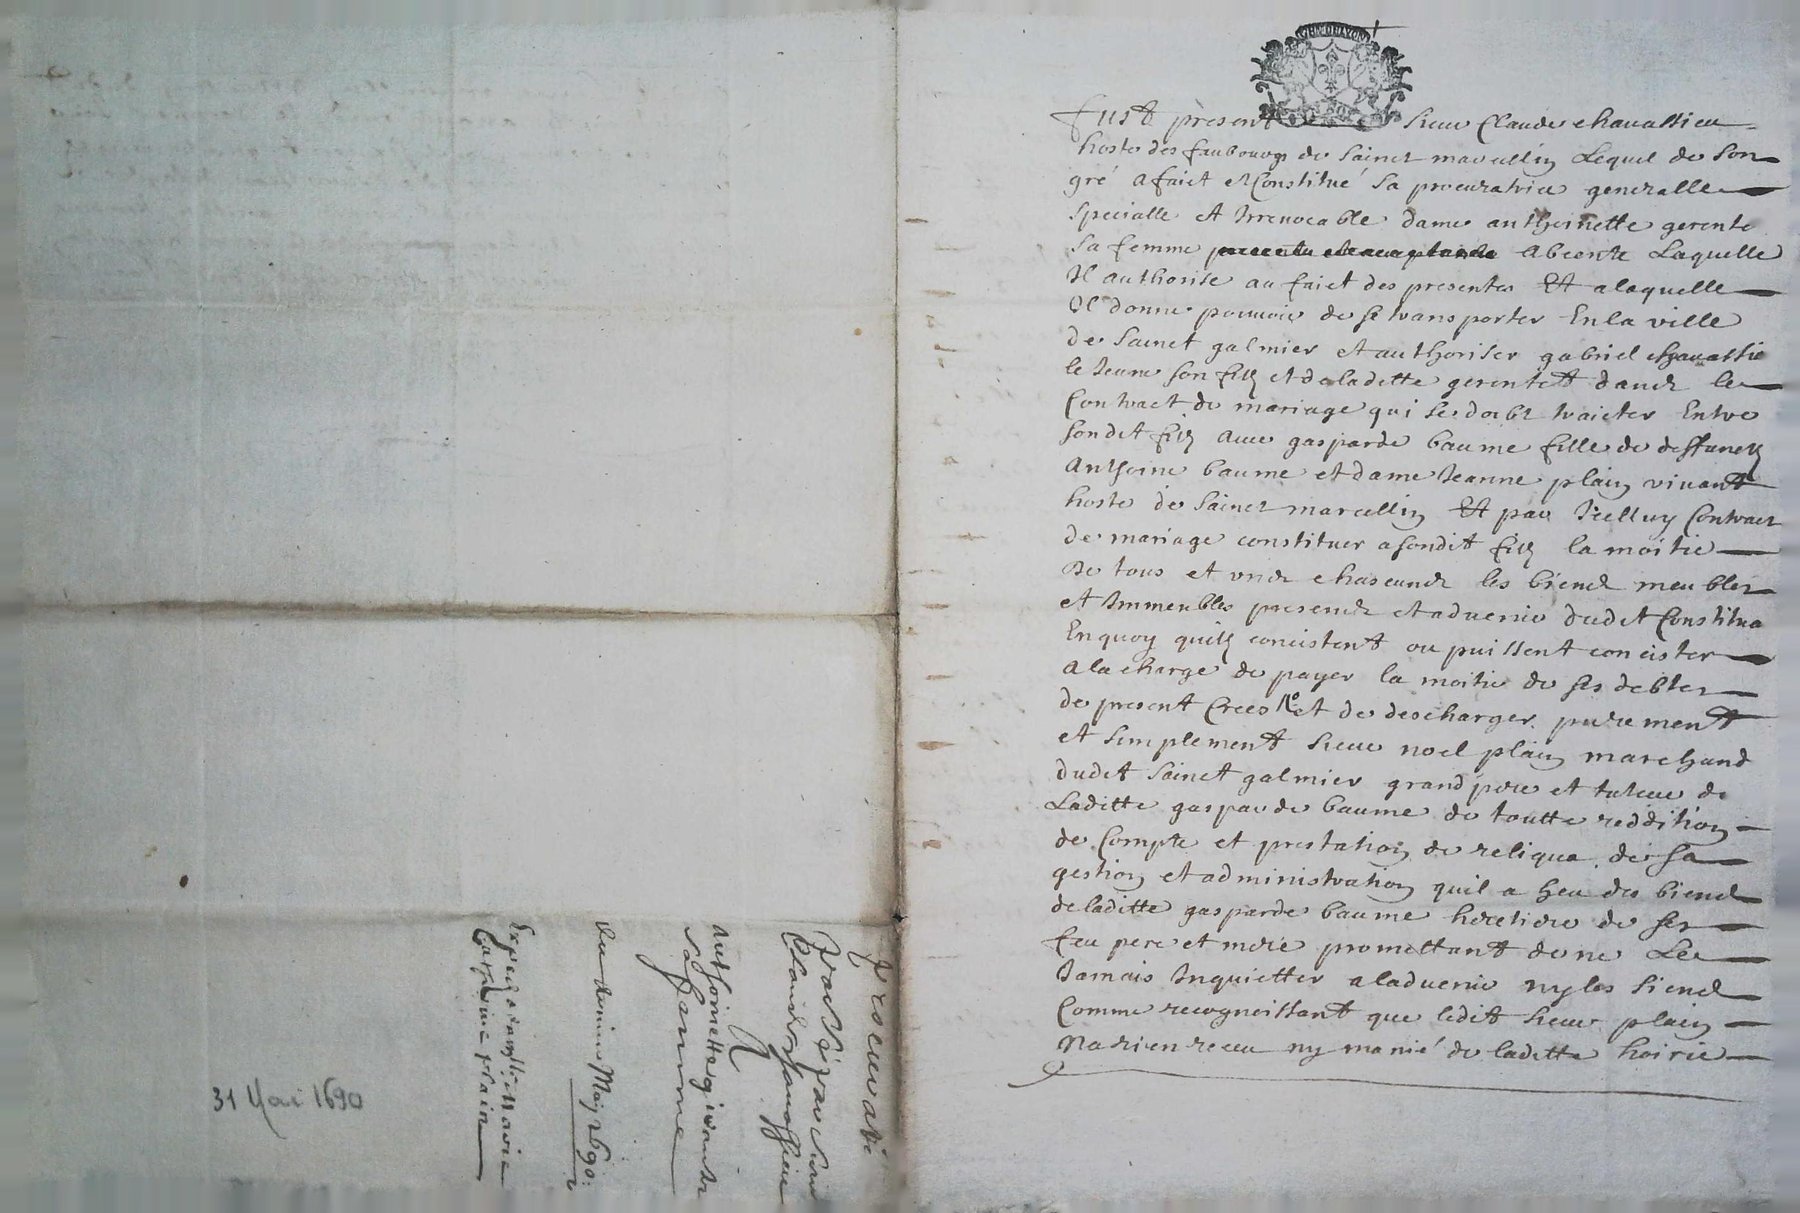 GEN DE LYON
Fust present sieur Claude chauassieu
hoste des faubourgs de sainct marcellin Lequel de son
gré a faict et Constitué sa procuratrice generalle
specialle et Irreuocable dame anthoinette gerente
sa femme absente Laquelle
Il authorise au faict des presentes Et a laquelle
Il donne pouuoir de se transporter En la ville
de sainct galmier et authoriser gabriel chauassie
le Jeune son filz et de laditte gerente dans le
Contract de mariage qui se doibt traicter Entre
sondit filz auec gasparde baume fille de deffunctz
anthoine baume et dame Jeanne plain viuant
hoste de sainct marcellin Et par Icelluy Contract
de mariage constituer a sondit filz la moitie
De tous et vns chascuns les biens meubles
et Immeubles presens et aduenir dudit Constitua
En quoy quilz concistent ou puissent concister
a la charge de payer la moitie de ses debtes
de present Crees et de descharger purement
et simplement sieur noel plain marchand
dudit sainct galmier grand pere et tuteur de
Laditte gasparde baume de toutte reddition
de Compte et prestation de reliqua de sa
gestion et administration quil a heu des biens
de laditte gasparde baume heretiere de ses
feu pere et mere promettant de ne Les
Jamais Inquietter a laduenir ny les siens
Comme recognoissant que ledit sieur plain
Na rien receu ny manié de laditte hoirie
procuratio
passé par sieur
Claude chauassieu
A
anthoinette gerente
sa femme
Du dernier May 1690
Catherine plain
31 Mai 1690